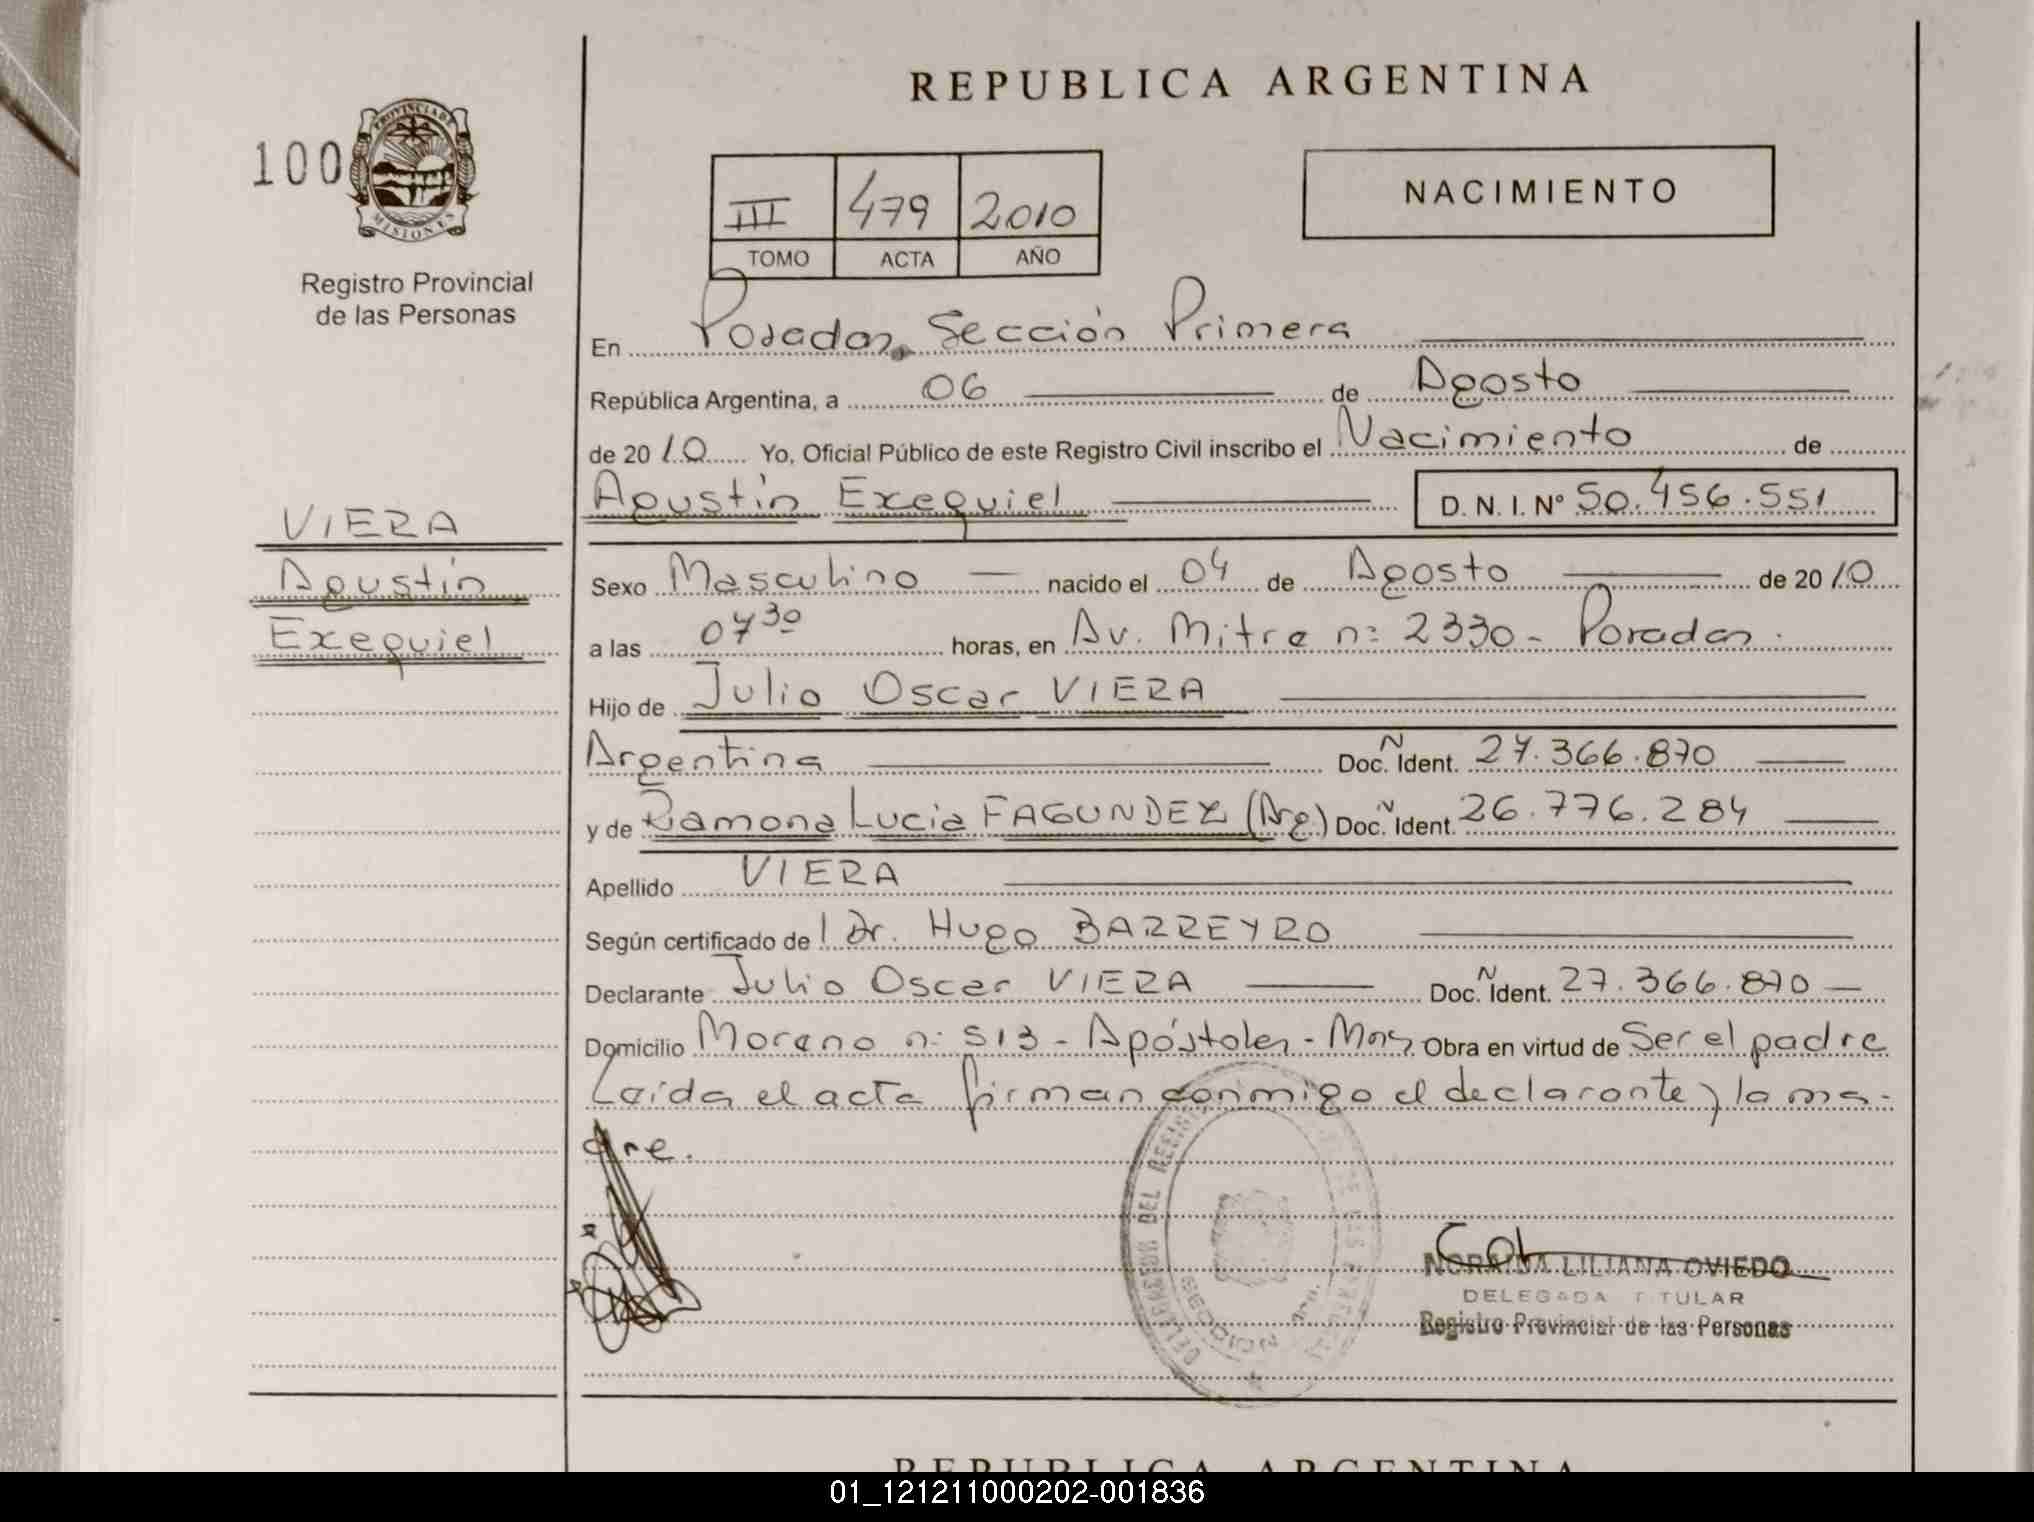 REPUBLICA ARGENTINA
100
PROVINCIA DE
MISIONES
Registro Provincial
de las Personas
III 479 2010
TOMO ACTA AÑO
NACIMIENTO
En Posadas Sección Primera
República Argentina, a 06 de Agosto
de 2010 Yo, Oficial Público de este Registro Civil inscribo el Nacimiento de
Agustín Exequiel D. N. I. Nº 50.456.551
VIERA
Agustín
Exequiel
Sexo Masculino nacido el 04 de Agosto de 2010
a las 07 30 horas, en Av. Mitre nº 2330 - Posadas.
Hijo de Julio Oscar VIERA
Argentina Doc. Ñ Ident. 27.366.870
y de Ramona Lucia FAGUNDEZ (Arg.) Doc. Ñ Ident. 26.776.284
Apellido VIERA
Según certificado de l Dr. Hugo BARREYRO
Declarante Julio Oscar VIERA Doc. Ñ Ident. 27.366.870
Domicilio Moreno nº 513 - Apóstoles - Mnes Obra en virtud de Ser el padre
Leída el acta firman conmigo el declarante y la ma-
dre.
DELEGACION DEL
SECCION 1ra.
NORAIDA LILIANA OVIEDO
DELEGADA TITULAR
Registro Provincial de las Personas
REPUBLICA ARGENTINA
01_121211000202-001836